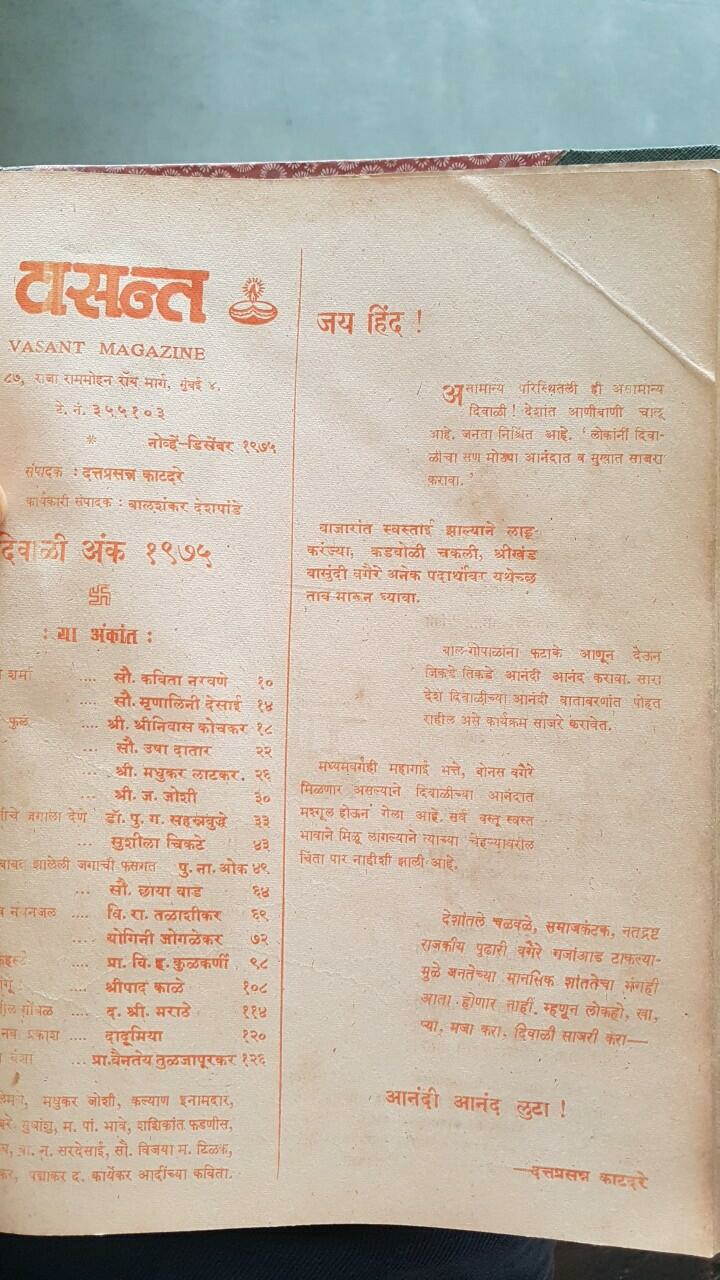 वसन्त
VASANT MAGAZINE
८७, राजा राममोहन रॉय मार्ग, मुंबई ४.
टे. नं. ३५५१०३
*
नोव्हें-डिसेंबर १९७५
संपादक : दत्तप्रसन्न काटदरे
कार्यकारी संपादक : बालशंकर देशपांडे
दिवाळी अंक १९७५
卐
: या अंकांत :
शर्मा .... सौ. कविता नरवणे १०
.... सौ. मृणालिनी देसाई १४
फुलं ... श्री. श्रीनिवास कोचकर १८
... सौ. उषा दातार २२
... श्री. मधुकर लाटकर. २६
... श्री. ज. जोशी ३०
जगाला देणे डॉ. पु. ग. सहस्रबुद्धे ३३
... सुशीला चिकटे ४३
झालेली जगाची फसगत पु. ना. ओक ४९
... सौ. छाया वाड ६४
.... वि. रा. तळाशीकर ६९
... योगिनी जोगळेकर ७२
... प्रा. वि. ह. कुळकर्णी ९८
... श्रीपाद काळे १०८
... द. श्री. मराठे ११४
प्रकाश .... दादूमिया १२०
... प्रा. वैनतेय तुळजापूरकर १२६
मधुकर जोशी, कल्याण इनामदार,
सुधांशु, म. पां. भावे, शशिकांत फडणीस,
वा. न. सरदेसाई, सौ. विजया म. टिळक,
पद्माकर द. कार्येकर आदींच्या कविता.
जय हिंद !
असामान्य परिस्थितली ही असामान्य
दिवाळी ! देशांत आणीबाणी चालू
आहे. जनता निश्चित आहे. ‘ लोकांनीं दिवा-
ळीचा सण मोठ्या आनंदात व सुखात साजरा
करावा. ’
बाजारांत स्वस्ताई झाल्याने लाडू
करंज्या, कडबोळी चकली, श्रीखंड
बासुंदी वगैरे अनेक पदार्थांवर यथेच्छ
ताव मारून घ्यावा.
बाल-गोपाळांना फटाके आणून देऊन
जिकडे तिकडे आनंदी आनंद करावा. सारा
देश दिवाळीच्या आनंदी वातावरणांत पोहत
राहील असे कार्यक्रम साजरे करावेत.
मध्यमवर्गही महागाई भत्ते, बोनस वगैरे
मिळणार असल्याने दिवाळीच्या आनंदात
मश्गूल होऊन गेला आहे. सर्व वस्तू स्वस्त
भावाने मिळू लागल्याने त्याच्या चेहऱ्यावरील
चिंता पार नाहीशी झाली आहे.
देशांतले चळवळे, समाजकंटक, नतद्रष्ट
राजकीय पुढारी वगैरे गजांआड टाकल्या-
मुळे जनतेच्या मानसिक शांततेचा भंगही
आता होणार नाहीं. म्हणून लोकहो, खा,
प्या, मजा करा. दिवाळी साजरी करा—
आनंदी आनंद लुटा !
—दत्तप्रसन्न काटदरे